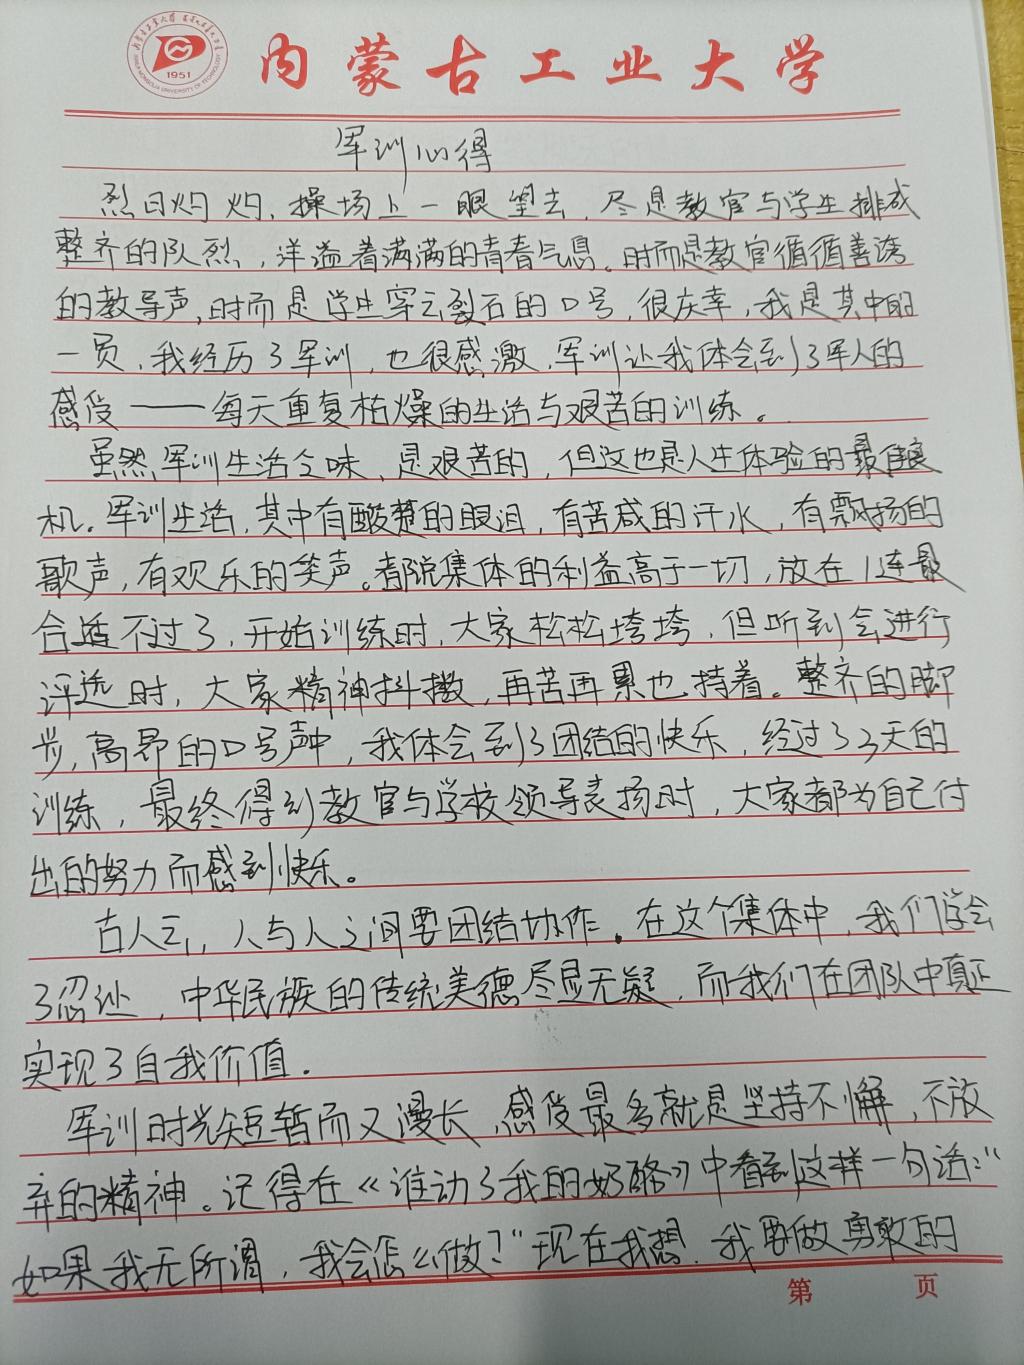 1951
内蒙古工业大学
军训心得
烈日灼灼，操场上一眼望去，尽是教官与学生排成
整齐的队烈，洋溢着满满的青春气息。时而是教官循循善诱
的教导声，时而是学生穿云裂石的口号，很庆幸，我是其中的
一员，我经历了军训，也很感激，军训让我体会到了军人的
感受——每天重复枯燥的生活与艰苦的训练。
虽然军训生活乏味，是艰苦的，但这也是人生体验的最佳良
机。军训生活，其中有酸楚的眼泪，有苦咸的汗水，有飘扬的
歌声，有欢乐的笑声。都说集体的利益高于一切，放在1连最
合适不过了，开始训练时，大家松松垮垮，但听到会进行
评选时，大家精神抖擞，再苦再累也持着。整齐的脚
步，高昂的口号声中，我体会到了团结的快乐，经过了3天的
训练，最终得到教官与学校领导表扬时，大家都为自己付
出的努力而感到快乐。
古人云，人与人之间要团结协作。在这个集体中，我们学会
了忍让，中华民族的传统美德尽显无疑，而我们在团队中真正
实现了自我价值.
军训时光短暂而又漫长，感受最多就是坚持不懈，不放
弃的精神。记得在《谁动了我的奶酪》中看到这样一句话：“
如果我无所谓，我会怎么做？”现在我想，我要做勇敢的
第 页